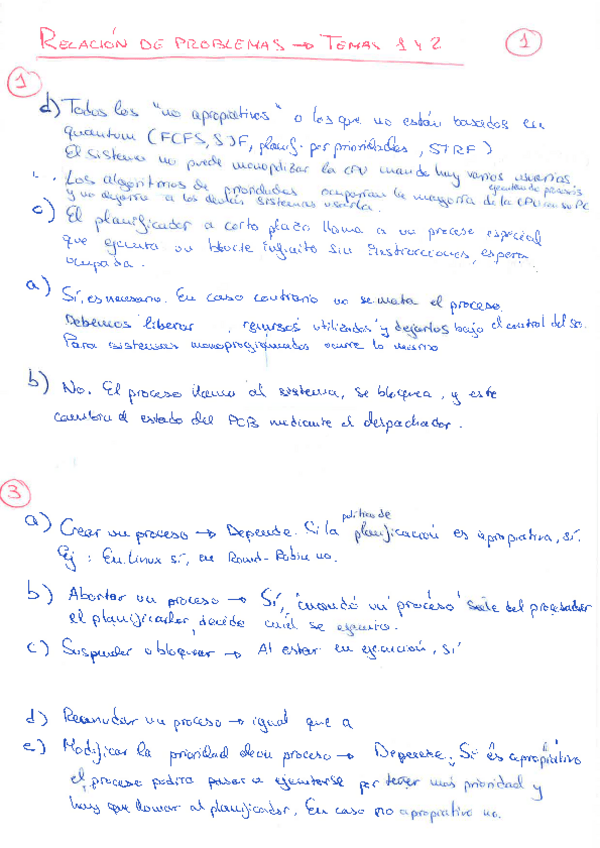 RELACIÓN DE PROBLEMAS → TEMAS 1 Y 2
1
1
d) Todos los "no apropiativos" o los que no están basados en
quantum (FCFS, SJF, planif. por prioridades, STRF)
El sistema no puede monopolizar la CPU cuando hay varios usuarios
Los algoritmos de prioridades ocuparían la mayoría de la CPU en su PC
ejecutando de procesos
y no a los demás sistemas
c) El planificador a corto plazo llama a un proceso especial
que ejecuta un bucle infinito sin instrucciones, espera
ocupada.
a) Sí, es necesario. En caso contrario no se mata el proceso.
Debemos liberar recursos utilizados y dejarlos bajo el control del SO.
Para sistemas monoprogramados ocurre lo mismo
b) No. El proceso llama al sistema, se bloquea, y este
cambia el estado del PCB mediante el despachador.
3
a) Crear un proceso → Depende. Si la política de planificación es apropiativa, sí.
Ej: En Linux sí, en Round-Robin no.
b) Abortar un proceso → Sí, cuando un proceso sale del procesador
el planificador, decide cuál se ejecuta.
c) Suspender o bloquear → Al estar en ejecución, sí
d) Reanudar un proceso → igual que a
e) Modificar la prioridad de un proceso → Depende. Si es apropiativo
el proceso podría pasar a ejecutarse por tener más prioridad y
hay que llamar al planificador. En caso no apropiativo no.